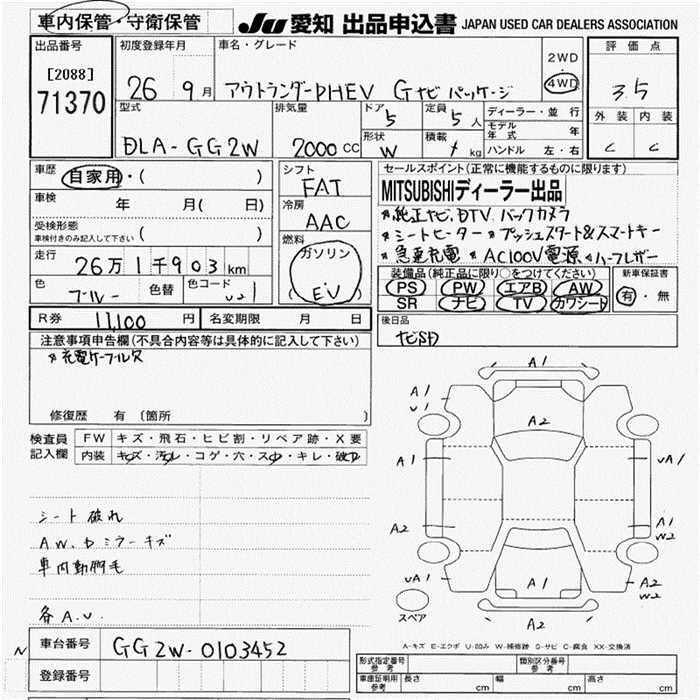 車内保管・守衛保管
JU 愛知 出品申込書 JAPAN USED CAR DEALERS ASSOCIATION
出品番号
[2088]
71370
初度登録年月
26 9月
車名・グレード
アウトランダーPHEV Gナビパッケージ
2WD
4WD
評価点
3.5
外装 内装
C C
型式
DLA-GG2W
排気量
2000cc
ドア
5
定員
5人
形状
W
積載
kg
ディーラー・並行
モデル年式 年
ハンドル 左・右
車歴
自家用・( )
車検
年 月( 日)
受検形態
車検付きのみ記入して下さい ( )
走行
26万1千903km
色
ブルー
色替
色コード
シフト
FAT
冷房
AAC
燃料
ガソリン
EV
セールスポイント(正常に機能するものに限ります)
MITSUBISHIディーラー出品
*純正ナビ,DTV バックカメラ
*シートヒーター *プッシュスタート&スマートキー
*急速充電 *AC100V電源 *ハーフレザー
装備品(純正品に限り○をつけてください)
PS PW エアB AW
SR ナビ TV カワシート
新車保証書
有・無
R券 11,100円
名変期限 月 日
後日品
ナビSD
注意事項申告欄(不具合内容等は具体的に記入して下さい)
*充電ケーブル欠
修復歴 有 〔箇所 〕
検査員記入欄
FW キズ・飛石・ヒビ割・リペア跡・X要
内装 キズ・汚れ・コゲ・穴・スレ・キレ・破れ
シート破れ
AW,Dミラーキズ
車内動物毛
各A.U.
A1
A1
U1
A2
A1
A1
UA1
A2
A1
W2
UA1
A1
A2
W2
A2
スペア
A-キズ E-エクボ U-凹み W-補修跡 S-サビ C-腐食 XX-交換済
N
車台番号
GG2W-0103452
登録番号
型式指定番号 参考
類別区分番号 参考
車庫証明用 参考
長さ cm
幅 cm
高さ cm